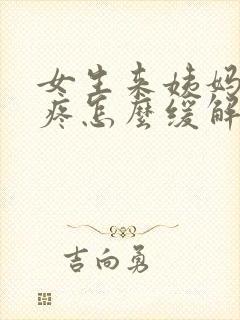 女生来姨妈
疼怎麼缓解
吉向勇